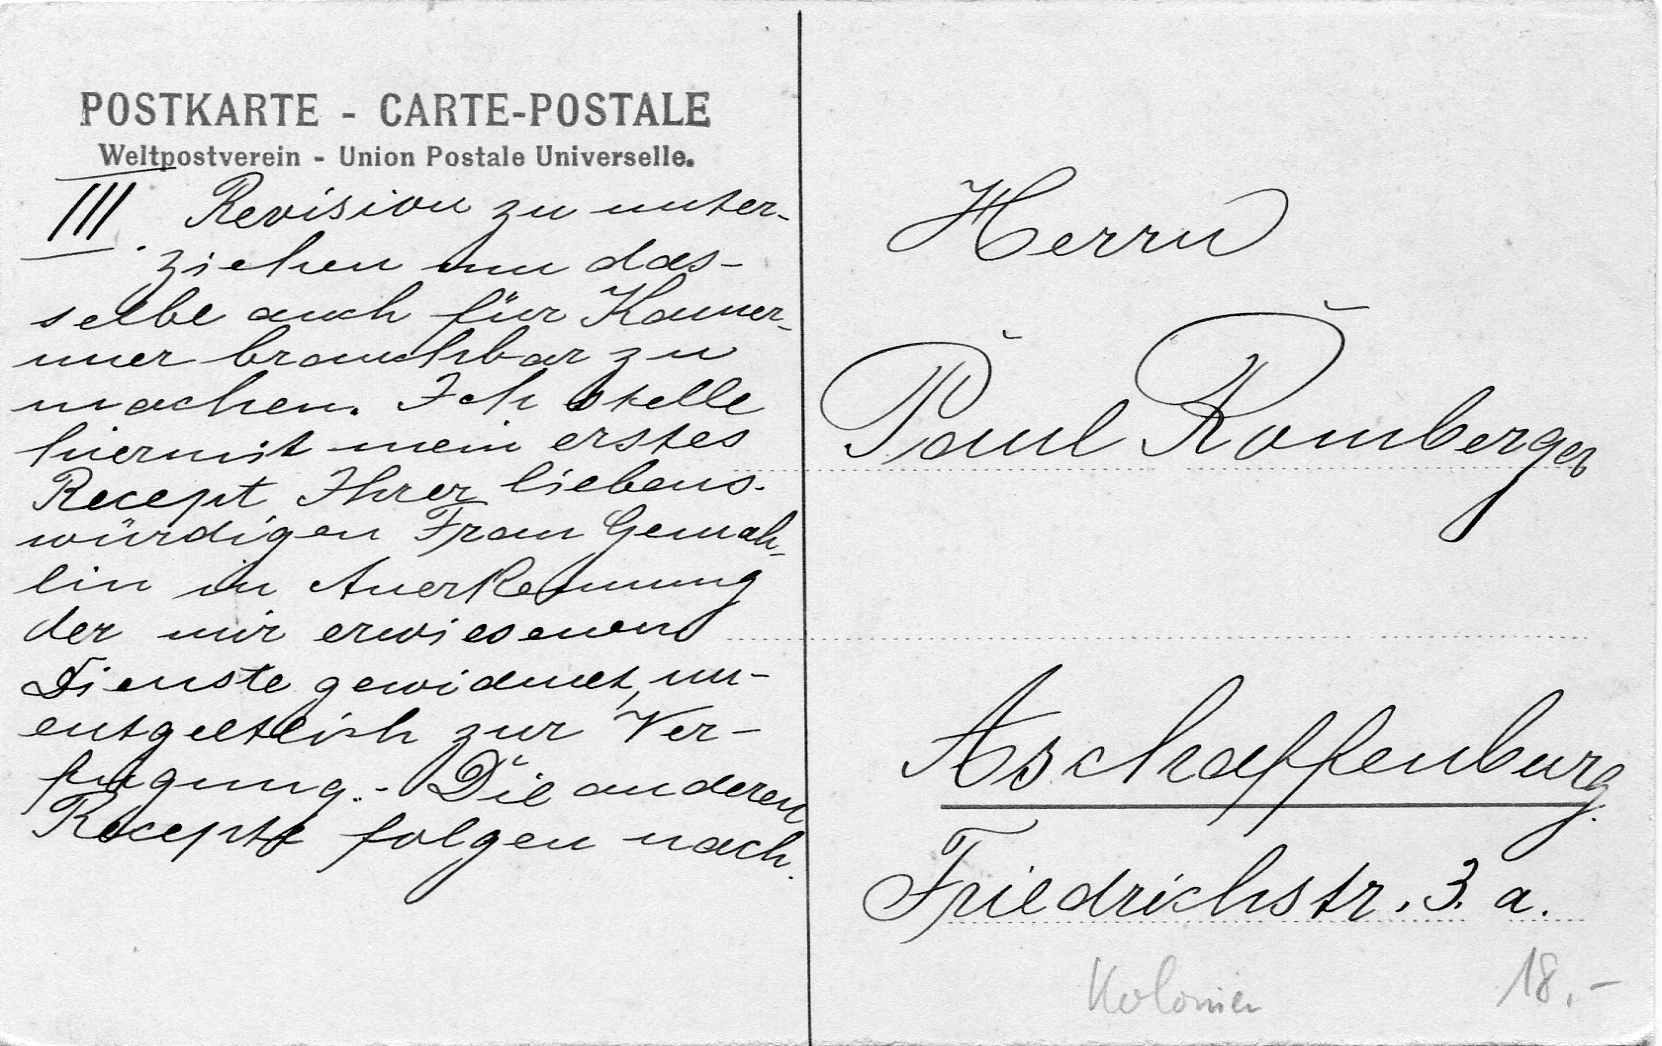 POSTKARTE - CARTE-POSTALE
Weltpostverein - Union Postale Universelle.
III. Revision zu unter-
ziehen um das-
selbe auch für Kamer-
uner brauchbar zu
machen. Ich stelle
hiermit mein erstes
Recept Ihrer liebens-
würdigen Frau Gemah-
lin in Anerkennung
der mir erwiesenen
Dienste gewidmet, un-
entgeltlich zur Ver-
fügung. - Die anderen
Recepte folgen nach.
Herrn
Paul Romberger
Aschaffenburg.
Friedrichstr. 3. a.
Kolonien
18.-